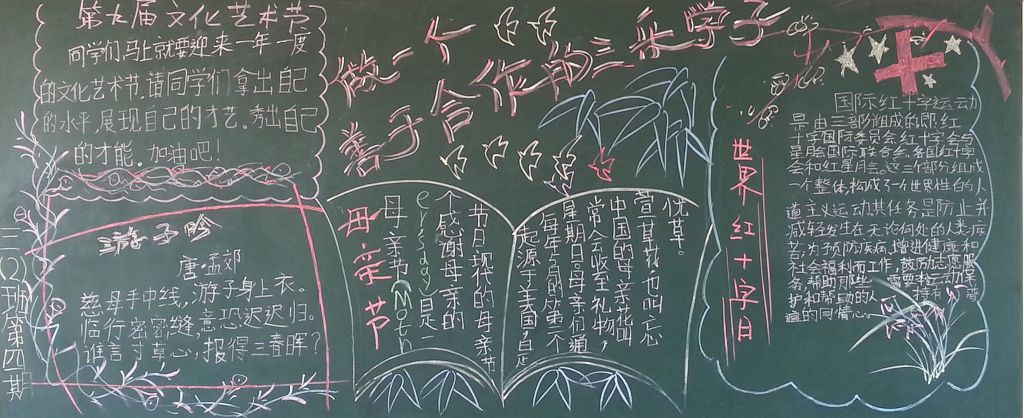 第九届文化艺术节
同学们马上就要迎来一年一度
的文化艺术节.请同学们拿出自己
的水平,展现自己的才艺。秀出自己
的才能。加油吧！
做一个
善于合作的三乐学子
游子吟
唐孟郊
慈母手中线,游子身上衣。
临行密密缝,意恐迟迟归。
谁言寸草心,报得三春晖？
三(2)班第四期
母亲节
母亲节(Moth
er's day)是一
个感谢母亲的
节日。现代的母亲节
起源于美国,自是
每年5月的第二个
星期日。母亲们通
常会收至礼物,
中国的母亲花叫
萱草花,也叫忘
忧草。
世界红十字月
国际红十字运动
是由三部分组成的,即红
十字国际委员会,红十字会会
星月会国际联合会、各国红十字
会和红星月会,这三个部分组成
一个整体,构成了一个世界性的人
道主义运动,其任务是防止并
减轻发生在无论何处的人类疾
苦,为了预防疾病,增进健康和
社会福利而工作,鼓励志愿服
护和帮助的人
遍的同情心.